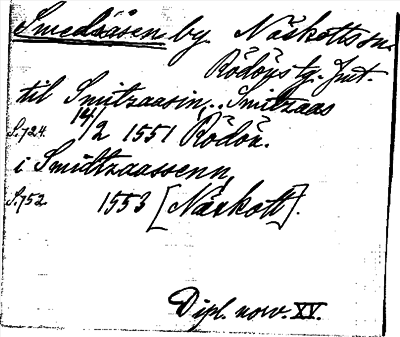 Smedsåsen by Näskotts sn.
Rödöns tg. Jmt.
til Smitzaasin, .. Smitzaas
S. 724. 14/2 1551 Rödön.
i Smittzaassenn,
S. 752. 1553 [Näskott].
Dipl. norv. XV.